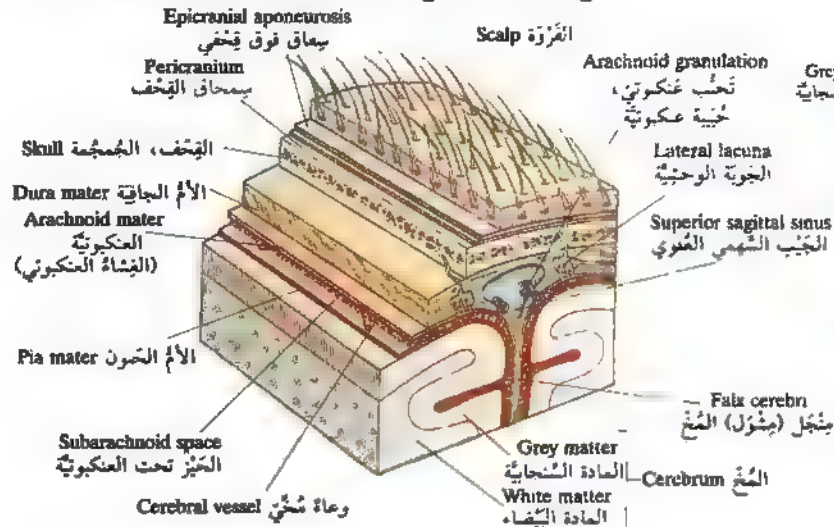 Epicranial aponeurosis
سِفاق فوق قِحْفي
Pericranium
سِمحاق القِحْف
Skull القِحْف، الجُمجُمة
Dura mater الأُمُّ الجافِيَة
Arachnoid mater
العنكبوتِيَّة
(الغِشاءُ العنكبوتي)
Pia mater الأُمُّ الحَنون
Subarachnoid space
الحَيِّز تحت العنكبوتِيَّة
Cerebral vessel وِعاءٌ مُخِّيّ
Scalp الفَرْوَة
Arachnoid granulation
تَحَبُّب عَنكبوتيّ،
حُبَيبة عنكبوتِيَّة
Lateral lacuna
الجَوبَة الوحشِيَّة
Superior sagittal sinus
الجَيْب السَّهمي العُلوي
Falx cerebri
مِنْجَل (مِشْوَل) المُخّ
Grey matter
المادة السِّنجابِيَّة
White matter
المادة البَيْضاء
Cerebrum المُخّ